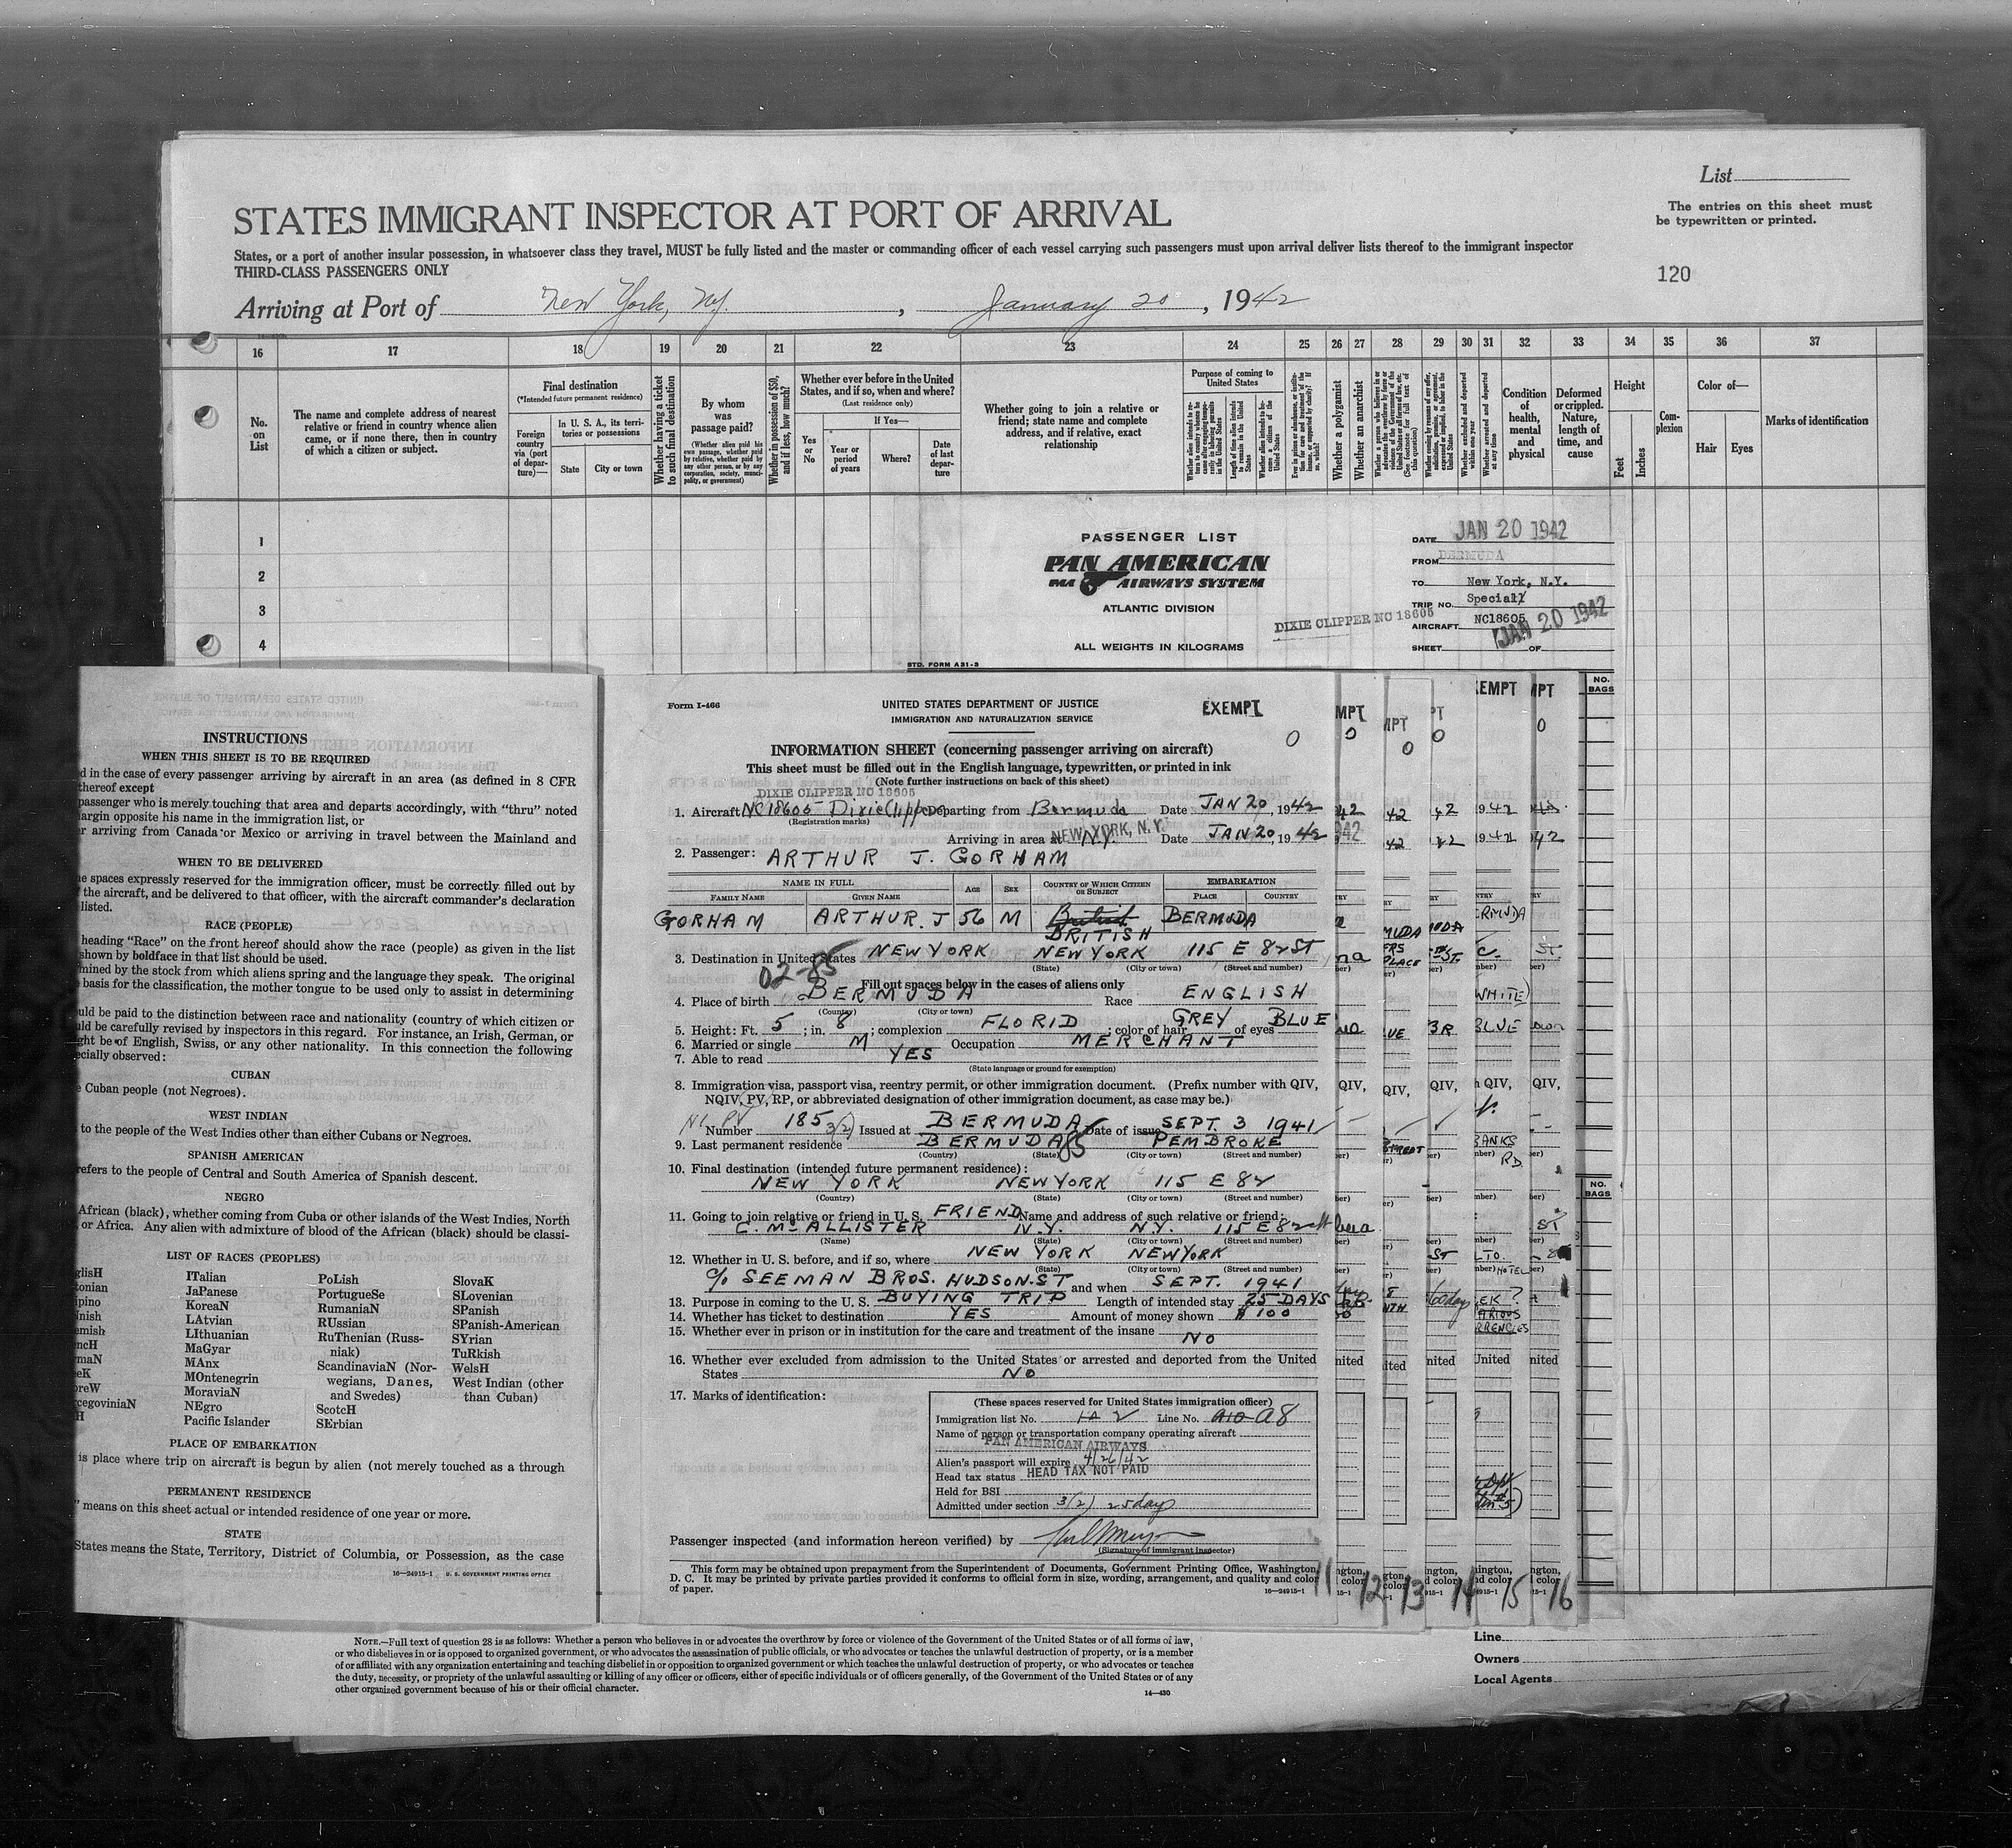 List
STATES IMMIGRANT INSPECTOR AT PORT OF ARRIVAL
The entries on this sheet must
be typewritten or printed.
States, or a port of another insular possession, in whatsoever class they travel, MUST be fully listed and the master or commanding officer of each vessel carrying such passengers must upon arrival deliver lists thereof to the immigrant inspector
THIRD-CLASS PASSENGERS ONLY
120
Arriving at Port of New York, NY. , January 20 , 1942
16 17 18 19 20 21 22 23 24 25 26 27 28 29 30 31 32 33 34 35 36 37
No. on List
The name and complete address of nearest relative or friend in country whence alien came, or if none there, then in country of which a citizen or subject.
Final destination
(*Intended future permanent residence)
Foreign country via (port of departure)—
In U. S. A., its territories or possessions
State
City or town
Whether having a ticket to such final destination
By whom was passage paid?
(Whether alien paid his own passage, whether paid by relative, whether paid by any other person, or by any corporation, society, municipality, or government)
Whether in possession of $50, and if less, how much?
Whether ever before in the United States, and if so, when and where?
(Last residence only)
Yes or No
If Yes—
Year or period of years
Where?
Date of last departure
Whether going to join a relative or friend; state name and complete address, and if relative, exact relationship
Purpose of coming to United States
Whether a polygamist
Whether an anarchist
Condition of health, mental and physical
Deformed or crippled. Nature, length of time, and cause
Height
Feet
Inches
Complexion
Color of—
Hair
Eyes
Marks of identification
1
2
3
4
PASSENGER LIST
PAN AMERICAN
PAA AIRWAYS SYSTEM
ATLANTIC DIVISION
ALL WEIGHTS IN KILOGRAMS
STD. FORM A31-3
DIXIE CLIPPER NC 18605
DATE JAN 20 1942
FROM BERMUDA
TO New York, N.Y.
TRIP NO. Special
AIRCRAFT NC18605
JAN 20 1942
SHEET OF
NO. BAGS
INSTRUCTIONS
WHEN THIS SHEET IS TO BE REQUIRED
d in the case of every passenger arriving by aircraft in an area (as defined in 8 CFR
thereof except
passenger who is merely touching that area and departs accordingly, with "thru" noted
argin opposite his name in the immigration list, or
r arriving from Canada or Mexico or arriving in travel between the Mainland and
WHEN TO BE DELIVERED
e spaces expressly reserved for the immigration officer, must be correctly filled out by
the aircraft, and be delivered to that officer, with the aircraft commander's declaration
listed.
RACE (PEOPLE)
heading "Race" on the front hereof should show the race (people) as given in the list
shown by boldface in that list should be used.
mined by the stock from which aliens spring and the language they speak. The original
basis for the classification, the mother tongue to be used only to assist in determining
uld be paid to the distinction between race and nationality (country of which citizen or
ld be carefully revised by inspectors in this regard. For instance, an Irish, German, or
ght be of English, Swiss, or any other nationality. In this connection the following
ecially observed:
CUBAN
e Cuban people (not Negroes).
WEST INDIAN
to the people of the West Indies other than either Cubans or Negroes.
SPANISH AMERICAN
refers to the people of Central and South America of Spanish descent.
NEGRO
African (black), whether coming from Cuba or other islands of the West Indies, North
or Africa. Any alien with admixture of blood of the African (black) should be classi-
LIST OF RACES (PEOPLES)
glisH
tonian
ipino
nnish
emish
encH
rmaN
eeK
breW
rcegoviniaN
H
ITalian
JaPanese
KoreaN
LAtvian
LIthuanian
MaGyar
MAnx
MOntenegrin
MoraviaN
NEgro
Pacific Islander
PoLish
PortugueSe
RumaniaN
RUssian
RuThenian (Russ-
niak)
ScandinaviaN (Nor-
wegians, Danes,
and Swedes)
ScotcH
SErbian
SlovaK
SLovenian
SPanish
SPanish-American
SYrian
TuRkish
WelsH
West Indian (other
than Cuban)
PLACE OF EMBARKATION
is place where trip on aircraft is begun by alien (not merely touched as a through
PERMANENT RESIDENCE
" means on this sheet actual or intended residence of one year or more.
STATE
States means the State, Territory, District of Columbia, or Possession, as the case
16—24915-1 U. S. GOVERNMENT PRINTING OFFICE
Form I-466
UNITED STATES DEPARTMENT OF JUSTICE
IMMIGRATION AND NATURALIZATION SERVICE
EXEMPT
0
INFORMATION SHEET (concerning passenger arriving on aircraft)
This sheet must be filled out in the English language, typewritten, or printed in ink
(Note further instructions on back of this sheet)
DIXIE CLIPPER NC 18605
1. Aircraft NC18605 Dixie Clipper Departing from Bermuda Date JAN 20, 1942
(Registration marks)
Arriving in area at NEW YORK, N.Y. N.Y. Date JAN 20, 1942
2. Passenger: ARTHUR J. GORHAM
NAME IN FULL
FAMILY NAME GIVEN NAME AGE SEX COUNTRY OF WHICH CITIZEN OR SUBJECT EMBARKATION PLACE COUNTRY
GORHAM ARTHUR. J 56 M British BERMUDA
BRITISH
3. Destination in United States NEW YORK NEW YORK 115 E 82 ST
(State) (City or town) (Street and number)
02-85
Fill out spaces below in the cases of aliens only
4. Place of birth BERMUDA Race ENGLISH
(Country) (City or town)
5. Height: Ft. 5 ; in. 8 ; complexion FLORID ; color of hair GREY of eyes BLUE
6. Married or single M Occupation MERCHANT
7. Able to read YES
(State language or ground for exemption)
8. Immigration visa, passport visa, reentry permit, or other immigration document. (Prefix number with QIV,
NQIV, PV, RP, or abbreviated designation of other immigration document, as case may be.)
Number 185 3(2) Issued at BERMUDA Date of issue SEPT. 3 1941
9. Last permanent residence BERMUDA 85 PEMBROKE
(Country) (State) (City or town) (Street and number)
10. Final destination (intended future permanent residence):
NEW YORK NEW YORK 115 E 82
(Country) (State) (City or town) (Street and number)
11. Going to join relative or friend in U. S. FRIEND Name and address of such relative or friend:
C. McALLISTER N.Y. N.Y. 115 E 82
(Name) (State) (City or town) (Street and number)
12. Whether in U. S. before, and if so, where NEW YORK NEW YORK
(State) (City or town) (Street and number)
c/o SEEMAN BROS. HUDSON. ST and when SEPT. 1941
13. Purpose in coming to the U. S. BUYING TRIP Length of intended stay 25 DAYS
14. Whether has ticket to destination YES Amount of money shown $ 100
15. Whether ever in prison or in institution for the care and treatment of the insane
NO
16. Whether ever excluded from admission to the United States or arrested and deported from the United
States NO
17. Marks of identification:
(These spaces reserved for United States immigration officer)
Immigration list No. 2 Line No. A10 A8
Name of person or transportation company operating aircraft
PAN AMERICAN AIRWAYS
Alien's passport will expire 4/26/42
Head tax status HEAD TAX NOT PAID
Held for BSI
Admitted under section 3(2) 25 days
Passenger inspected (and information hereon verified) by
(Signature of immigrant inspector)
This form may be obtained upon prepayment from the Superintendent of Documents, Government Printing Office, Washington,
D. C. It may be printed by private parties provided it conforms to official form in size, wording, arrangement, and quality and color
of paper.
16—24915-1
11 12 13 14 15 16
NOTE.—Full text of question 28 is as follows: Whether a person who believes in or advocates the overthrow by force or violence of the Government of the United States or of all forms of law,
or who disbelieves in or is opposed to organized government, or who advocates the assassination of public officials, or who advocates or teaches the unlawful destruction of property, or is a member
of or affiliated with any organization entertaining and teaching disbelief in or opposition to organized government or which teaches the unlawful destruction of property, or who advocates or teaches
the duty, necessity, or propriety of the unlawful assaulting or killing of any officer or officers, either of specific individuals or of officers generally, of the Government of the United States or of any
other organized government because of his or their official character.
14—430
Line
Owners
Local Agents